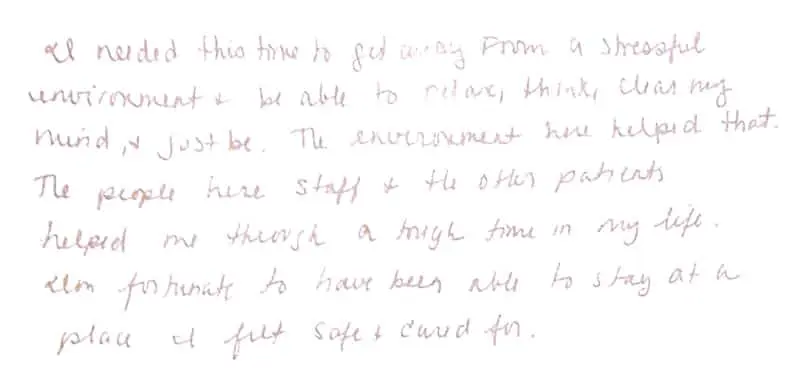 I needed this time to get away From a stressful
environment & be able to relax, think, clear my
mind, & just be. The environment here helped that.
The people here staff & the other patients
helped me through a tough time in my life.
I'm fortunate to have been able to stay at a
place I felt safe & cared for.